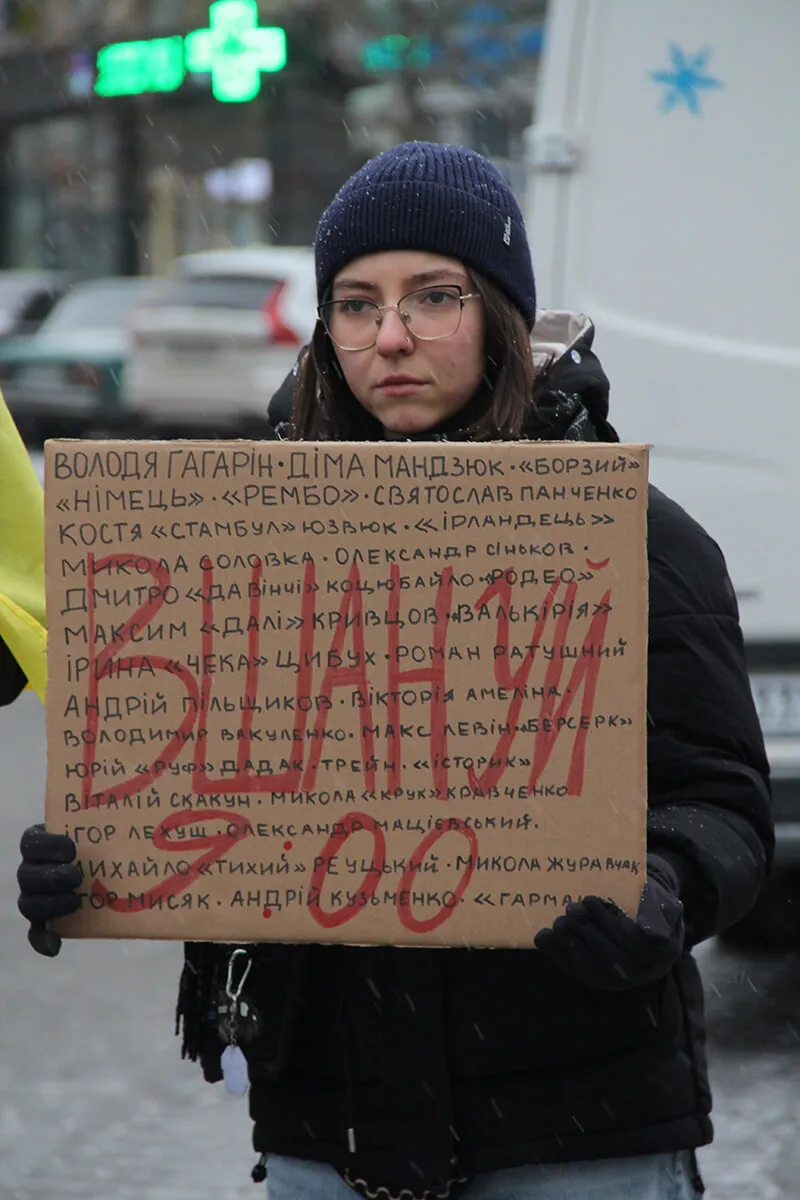 ВОЛОДЯ ГАГАРІН · ДІМА МАНДЗЮК · «БОРЗИЙ»
«НІМЕЦЬ» · «РЕМБО» · СВЯТОСЛАВ ПАНЧЕНКО
КОСТЯ «СТАМБУЛ» ЮЗВЮК · «ІРЛАНДЕЦЬ»
МИКОЛА СОЛОВКА · ОЛЕКСАНДР СІНЬКОВ ·
ДМИТРО «ДА ВІНЧІ» КОЦЮБАЙЛО · «РОДЕО»
МАКСИМ «ДАЛІ» КРИВЦОВ · «ВАЛЬКІРІЯ»
ІРИНА «ЧЕКА» ЦИБУХ · РОМАН РАТУШНИЙ
АНДРІЙ ПІЛЬЩИКОВ · ВІКТОРІЯ АМЕЛІНА ·
ВОЛОДИМИР ВАКУЛЕНКО · МАКС ЛЕВІН · «БЕРСЕРК»
ЮРІЙ «РУФ» ДАДАК · ТРЕЙН · «ІСТОРИК»
ВІТАЛІЙ СКАКУН · МИКОЛА «КРУК» КРАВЧЕНКО
ІГОР ЛЕХУЩ · ОЛЕКСАНДР МАЦІЄВСЬКИЙ.
МИХАЙЛО «ТИХИЙ» РЕУЦЬКИЙ · МИКОЛА ЖУРАВЧАК
ІГОР МИСЯК · АНДРІЙ КУЗЬМЕНКО ·
ВШАНУЙ
9:00